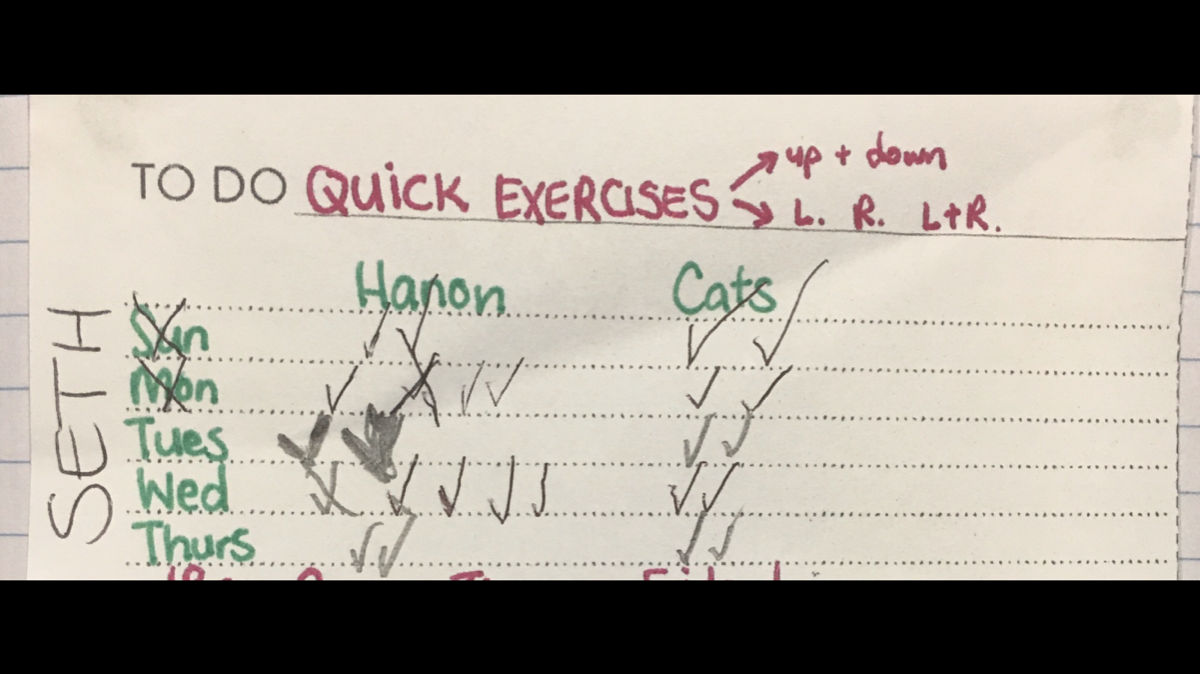 TO DO QUiCK EXERCISES
up + down
L. R. L+R.
SETH
Hanon Cats
Sun
Mon
Tues
Wed
Thurs